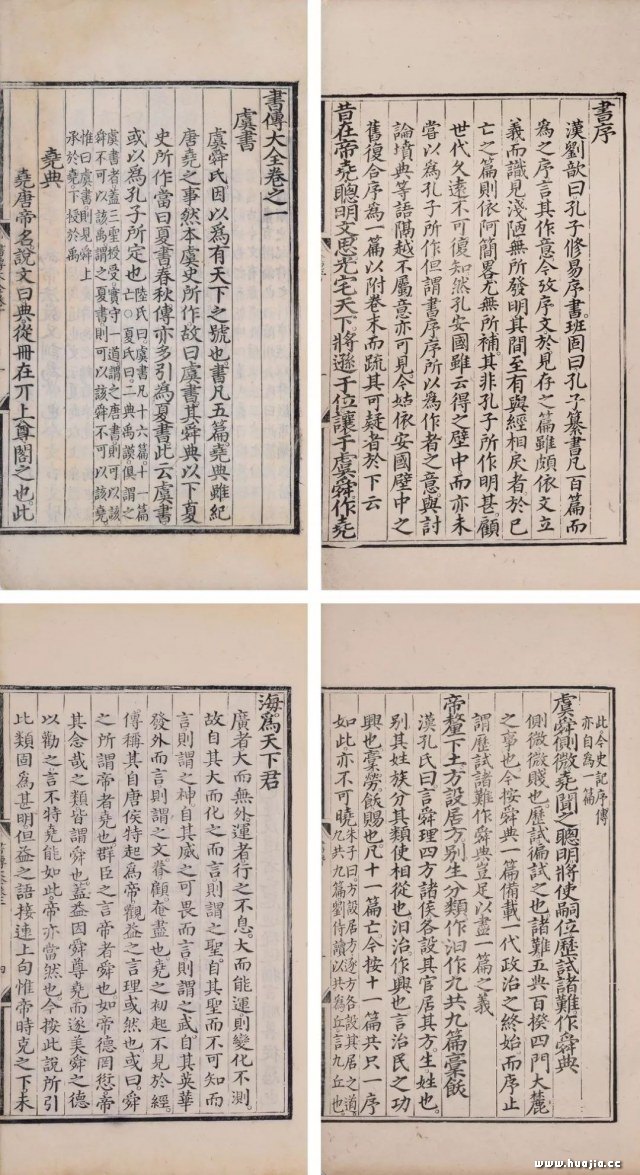 書序
漢劉歆曰孔子修易序書班固曰孔子纂書凡百篇而
為之序言其作意今攷序文於見存之篇雖頗依文立
義而識見淺陋無所發明其間至有與經相戾者於已
亡之篇則依阿簡畧尤無所補其非孔子所作明甚顧
世代久遠不可復知然孔安國雖云得之壁中而亦未
嘗以為孔子所作但謂書序序所以為作者之意與討
論墳典等語隔越不屬意亦可見今姑依安國壁中之
舊復合序為一篇以附卷末而疏其可疑者於下云
昔在帝堯聰明文思光宅天下將遜于位讓于虞舜作堯
書傳大全卷之一
虞書
虞舜氏因以為有天下之號也書凡五篇堯典雖紀
唐堯之事然本虞史所作故曰虞書其舜典以下夏
史所作當曰夏書春秋傳亦多引為夏書此云虞書
或以為孔子所定也
陸氏曰虞書凡十六篇十一篇
亡○夏氏曰二典禹謨俱謂之
虞書者蓋三聖授受實守一道謂之唐書則可以該
舜不可以該禹謂之夏書則可以該舜不可以該堯
惟曰虞書則見舜上
承於堯下授於禹
堯典
堯唐帝名說文曰典從冊在丌上尊閣之也此
此今史記序傳
亦自為一篇
虞舜側微堯聞之聰明將使嗣位歷試諸難作舜典
側微微賤也歷試徧試之也諸難五典百揆四門大麓
之事也今按舜典一篇備載一代政治之終始而序止
謂歷試諸難作舜典豈足以盡一篇之義
帝釐下土方設居方別生分類作汩作九共九篇槀飫
漢孔氏曰言舜理四方諸侯各設其官居其方生姓也
別其姓族分其類使相從也汩治作興也言治民之功
興也槀勞飫賜也凡十一篇亡今按十一篇共只一序
如此亦不可曉
朱子曰方設居方逐方各設其居之道
九共九篇劉侍讀以共為丘言九丘也
海為天下君
廣者大而無外運者行之不息大而能運則變化不測
故自其大而化之而言則謂之聖自其聖而不可知而
言則謂之神自其威之可畏而言則謂之武自其英華
發外而言則謂之文眷顧奄盡也堯之初起不見於經
傳稱其自唐侯特起為帝觀益之言理或然也或曰舜
之所謂帝者堯也群臣之言帝者舜也如帝德罔愆帝
其念哉之類皆謂舜也蓋益因舜尊堯而遂美舜之德
以勸之言不特堯能如此帝亦當然也今按此說所引
比類固為甚明但益之語接連上句惟帝時克之下未
www.huajia.cc